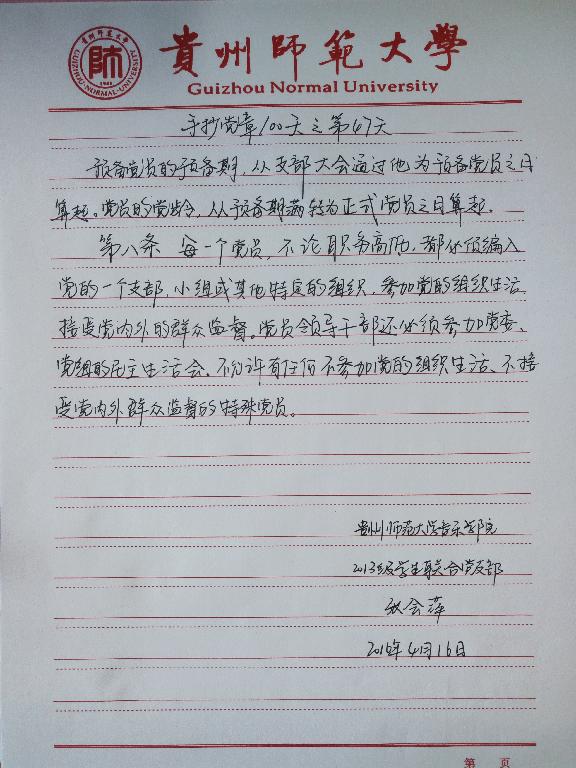 貴州師範大學
Guizhou Normal University
GUIZHOU·NORMAL·UNIVERSITY
手抄党章100天之第47天
预备党员的预备期，从支部大会通过他为预备党员之日
算起。党员的党龄，从预备期满转为正式党员之日算起。
第八条 每一个党员，不论职务高低，都必须编入
党的一个支部、小组或其他特定的组织，参加党的组织生活，
接受党内外的群众监督。党员领导干部还必须参加党委、
党组的民主生活会。不允许有任何不参加党的组织生活、不接
受党内外群众监督的特殊党员。
贵州师范大学音乐学院
2013级学生联合党支部
张会萍
2016年4月16日
第 页